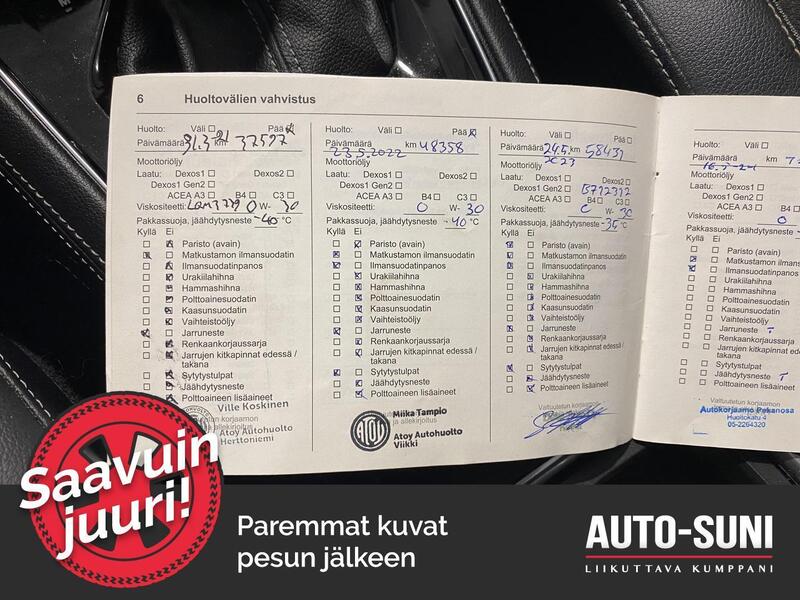 6 Huoltovälien vahvistus
Huolto: Väli Pää
Päivämäärä 31.3-21 km 37597
Moottoriöljy
Laatu: Dexos1 Dexos2
Dexos1 Gen2
ACEA A3 B4 C3
Viskositeetti: 0 W- 30
Pakkassuoja, jäähdytysneste -40 °C
Kyllä Ei
Paristo (avain)
Matkustamon ilmansuodatin
Ilmansuodatinpanos
Urakiilahihna
Hammashihna
Polttoainesuodatin
Kaasunsuodatin
Vaihteistoöljy
Jarruneste
Renkaankorjaussarja
Jarrujen kitkapinnat edessä /
takana
Sytytystulpat
Jäähdytysneste
Polttoaineen lisäaineet
Ville Koskinen
Atoy Autohuolto
Herttoniemi
Huolto: Väli Pää
Päivämäärä km 48358
23.5.2022
Moottoriöljy
Laatu: Dexos1 Dexos2
Dexos1 Gen2
ACEA A3 B4 C3
Viskositeetti: 0 W- 30
Pakkassuoja, jäähdytysneste -40 °C
Kyllä Ei
Paristo (avain)
Matkustamon ilmansuodatin
Ilmansuodatinpanos
Urakiilahihna
Hammashihna
Polttoainesuodatin
Kaasunsuodatin
Vaihteistoöljy
Jarruneste
Renkaankorjaussarja
Jarrujen kitkapinnat edessä /
takana
Sytytystulpat
Jäähdytysneste
Polttoaineen lisäaineet
ATOY
Miika Tampio
ja allekirjoitus
Atoy Autohuolto
Viikki
Huolto: Väli Pää
Päivämäärä 24.5. km 58431
2023
Moottoriöljy
Laatu: Dexos1 Dexos2
Dexos1 Gen2 B712312
ACEA A3 B4 C3
Viskositeetti: 0 W- 30
Pakkassuoja, jäähdytysneste -35 °C
Kyllä Ei
Paristo (avain)
Matkustamon ilmansuodatin
Ilmansuodatinpanos
Urakiilahihna
Hammashihna
Polttoainesuodatin
Kaasunsuodatin
Vaihteistoöljy
Jarruneste
Renkaankorjaussarja
Jarrujen kitkapinnat edessä /
takana
Sytytystulpat
Jäähdytysneste
Polttoaineen lisäaineet
Valtuutetun korjaamon
Huolto: Väli
Päivämäärä km
Moottoriöljy
Laatu: Dexos1
Dexos1 Gen2
ACEA A3
Viskositeetti: 0
Pakkassuoja, jäähdytysneste
Kyllä Ei
Paristo (avain)
Matkustamon ilmansuodatin
Ilmansuodatinpanos
Urakiilahihna
Hammashihna
Polttoainesuodatin
Kaasunsuodatin
Vaihteistoöljy
Jarruneste
Renkaankorjaussarja
Jarrujen kitkapinnat
takana
Sytytystulpat
Jäähdytysneste
Polttoaineen lisäaineet
Autokorjaamo Pekanosa
Huoltokatu 4
05-2264320
Saavuin
juuri!
Paremmat kuvat
pesun jälkeen
AUTO-SUNI
LIIKUTTAVA KUMPPANI